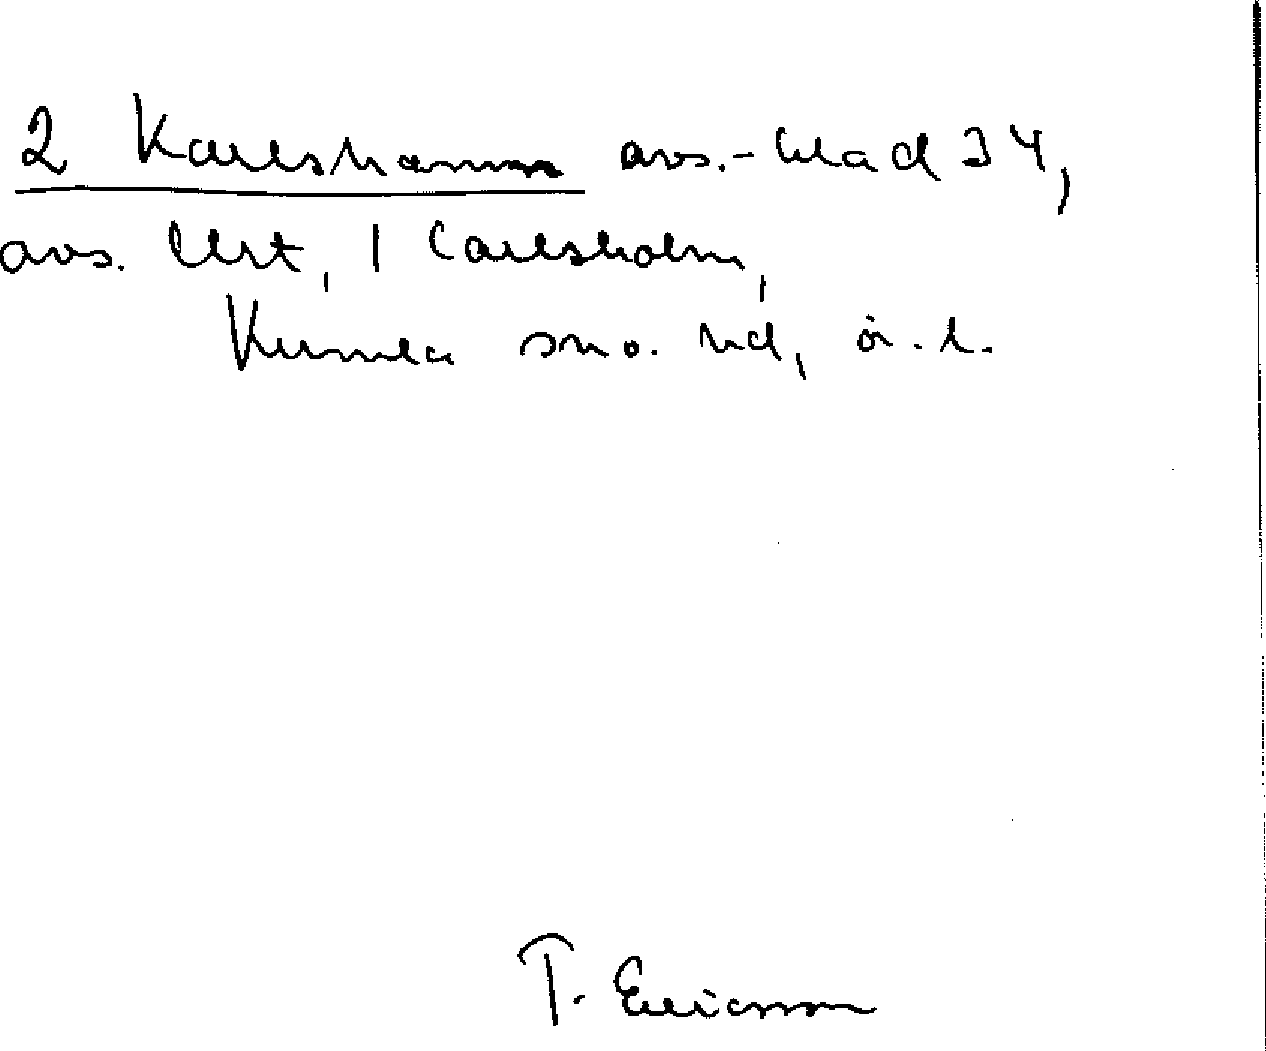 2 Karlshamn avs.-blad 34,
avs. Urt, 1 Carlsholm,
Kumla sn o. hd, ö. l.
T. Ericsson